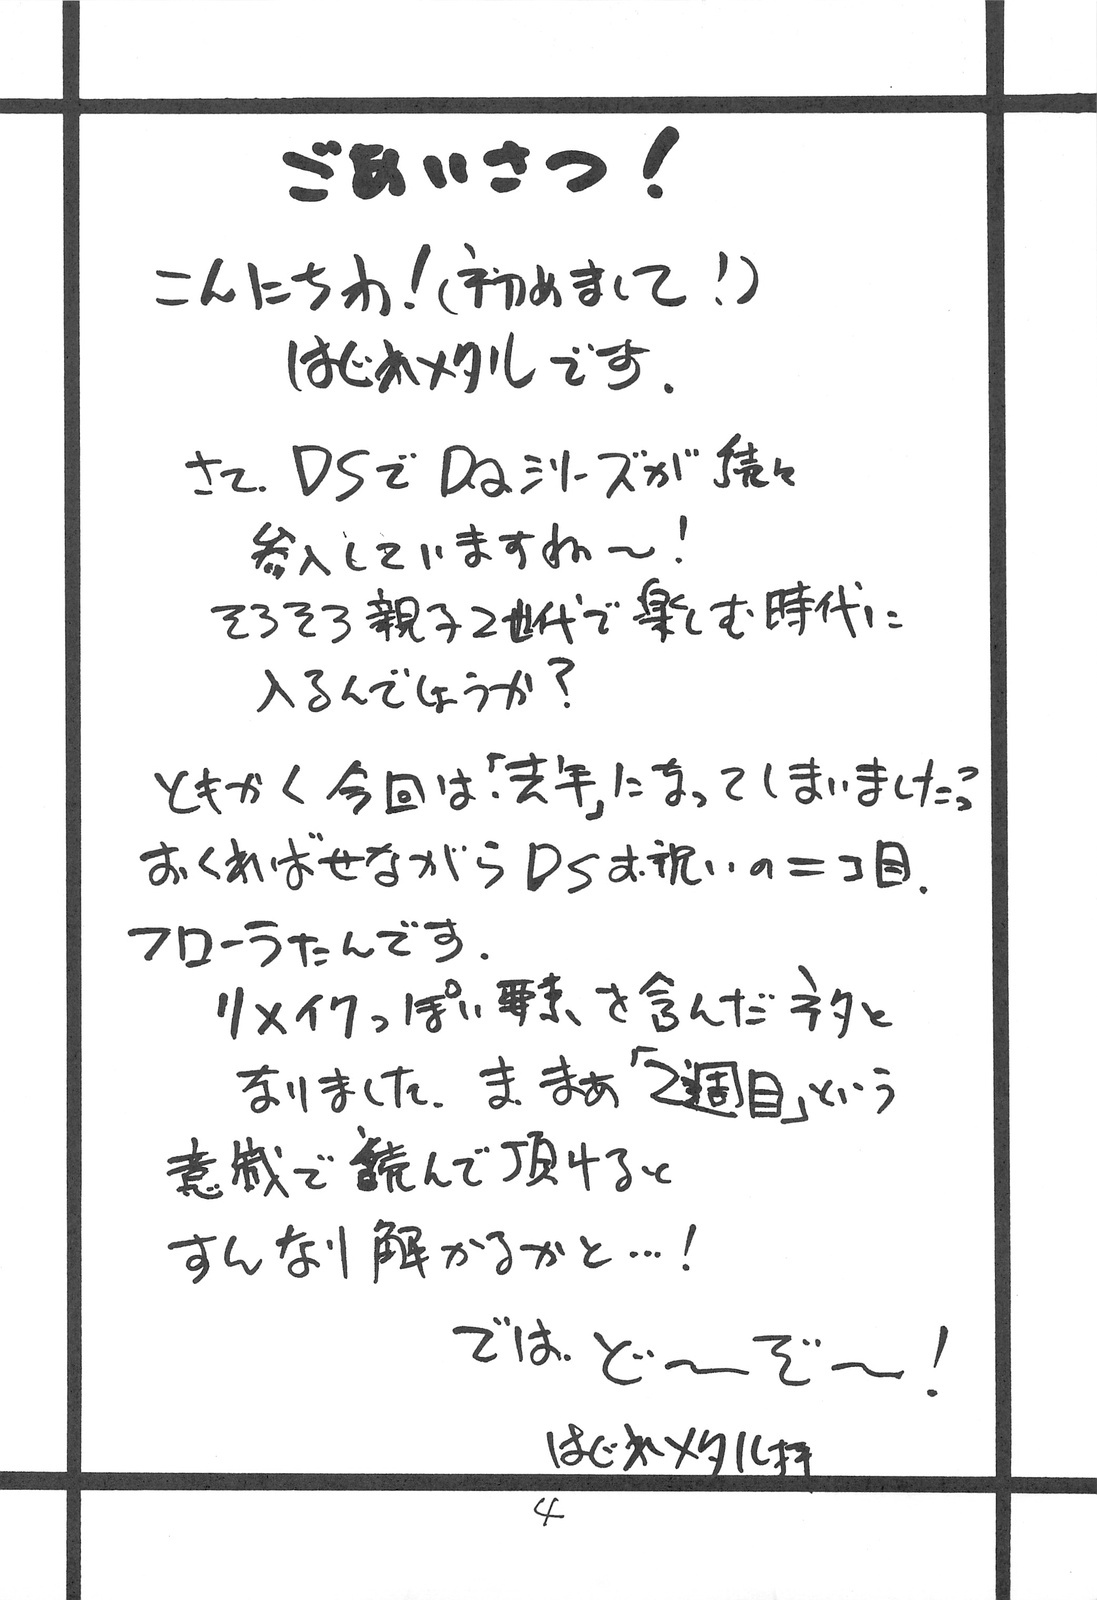 ごあいさつ！
こんにちわ！（初めまして！）
はじれメタルです．
さて．DSでDQシリーズが続々
参入していますね〜！
そろそろ親子2世代で楽しむ時代に
入るんでしょうか？
ともかく今回は「去年」になってしまいました？
おくればせながらDSお祝いの二コ目．
フローラたんです．
リメイクっぽい要素を含んだネタと
なりました．ま、まぁ「2週目」という
意識で読んで頂けると
すんなり解かるかと…！
では．ど〜ぞ〜！
はじれメタル拝
4